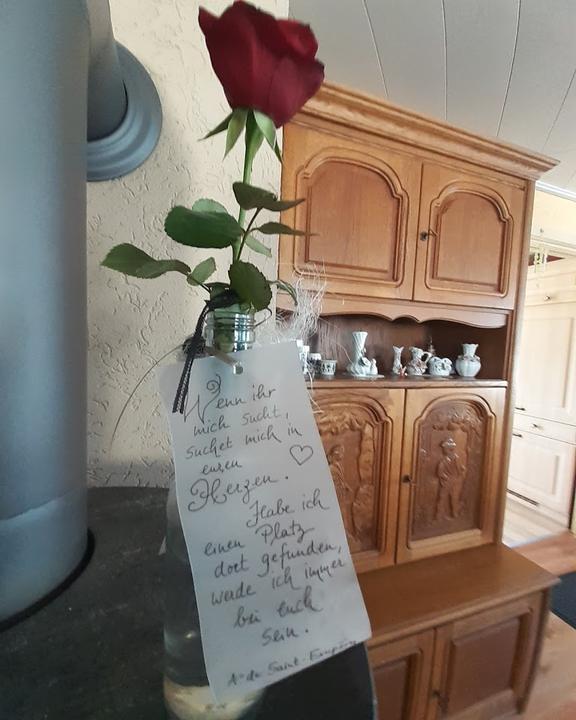 Wenn ihr
mich sucht,
suchet mich in
euren
Herzen.
Habe ich
einen Platz
dort gefunden,
werde ich immer
bei euch
sein.
A. de Saint-Exupéry